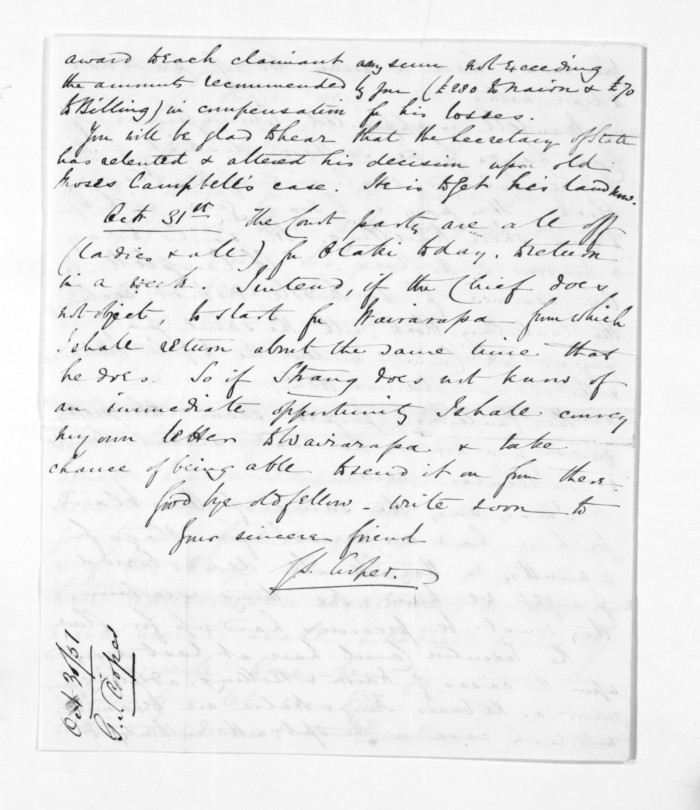 award to each claimant any sum not exceeding
the amounts recommended by you (£280 to Nairn & £70
to Billing) in compensation for his losses.
You will be glad to hear that the Secretary of State
has relented & altered his decision upon old
Moses Campbell's case. He is to get his land now.
Octr 31st. The Court party are all off
(ladies & all) for Otaki today, to return
in a week. I intend, if the Chief does
not object, to start for Wairarapa from which
I shall return about the same time that
he does. So if Strang does not know of
an immediate opportunity I shall convey
my own letter to Wairarapa & take
chance of being able to send it on from there.
Good bye old fellow - write soon to
Your sincere friend
G.S. Cooper.
Oct 30/51
G.S. Cooper